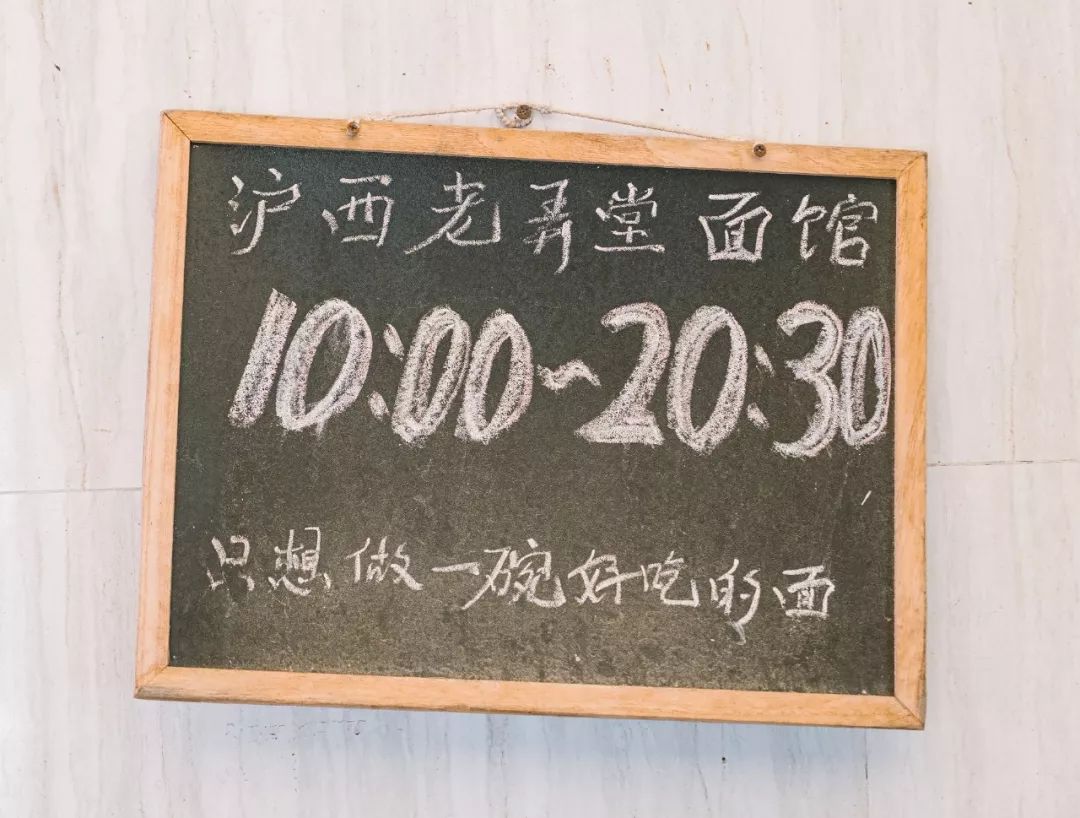 沪西老弄堂面馆
10:00~20:30
只想做一碗好吃的面